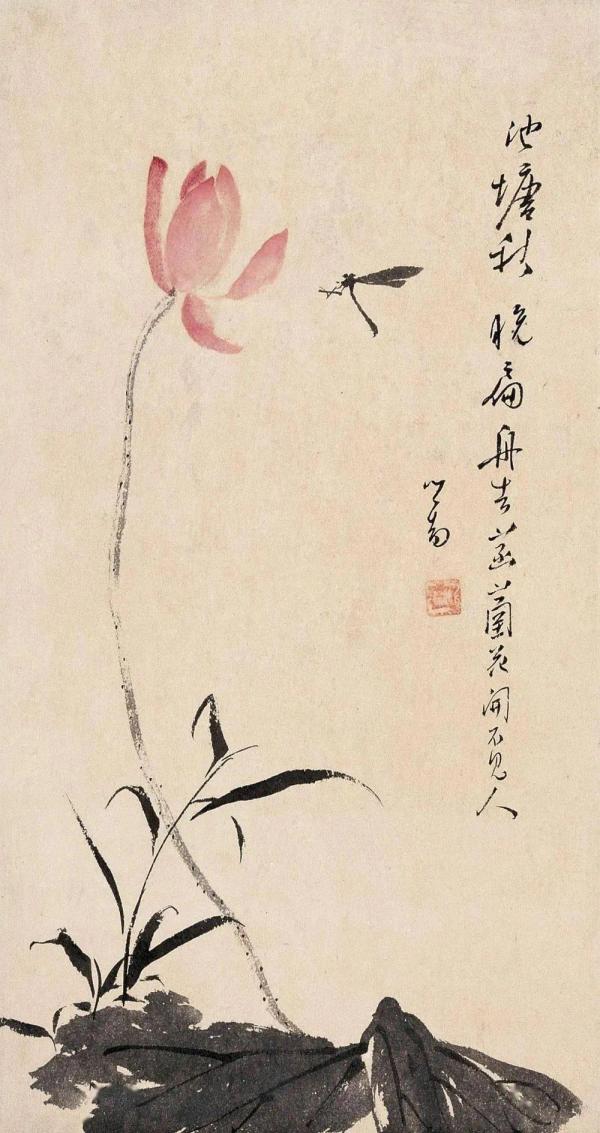 池塘秋晚扁舟去菡萏花開不見人
心畬